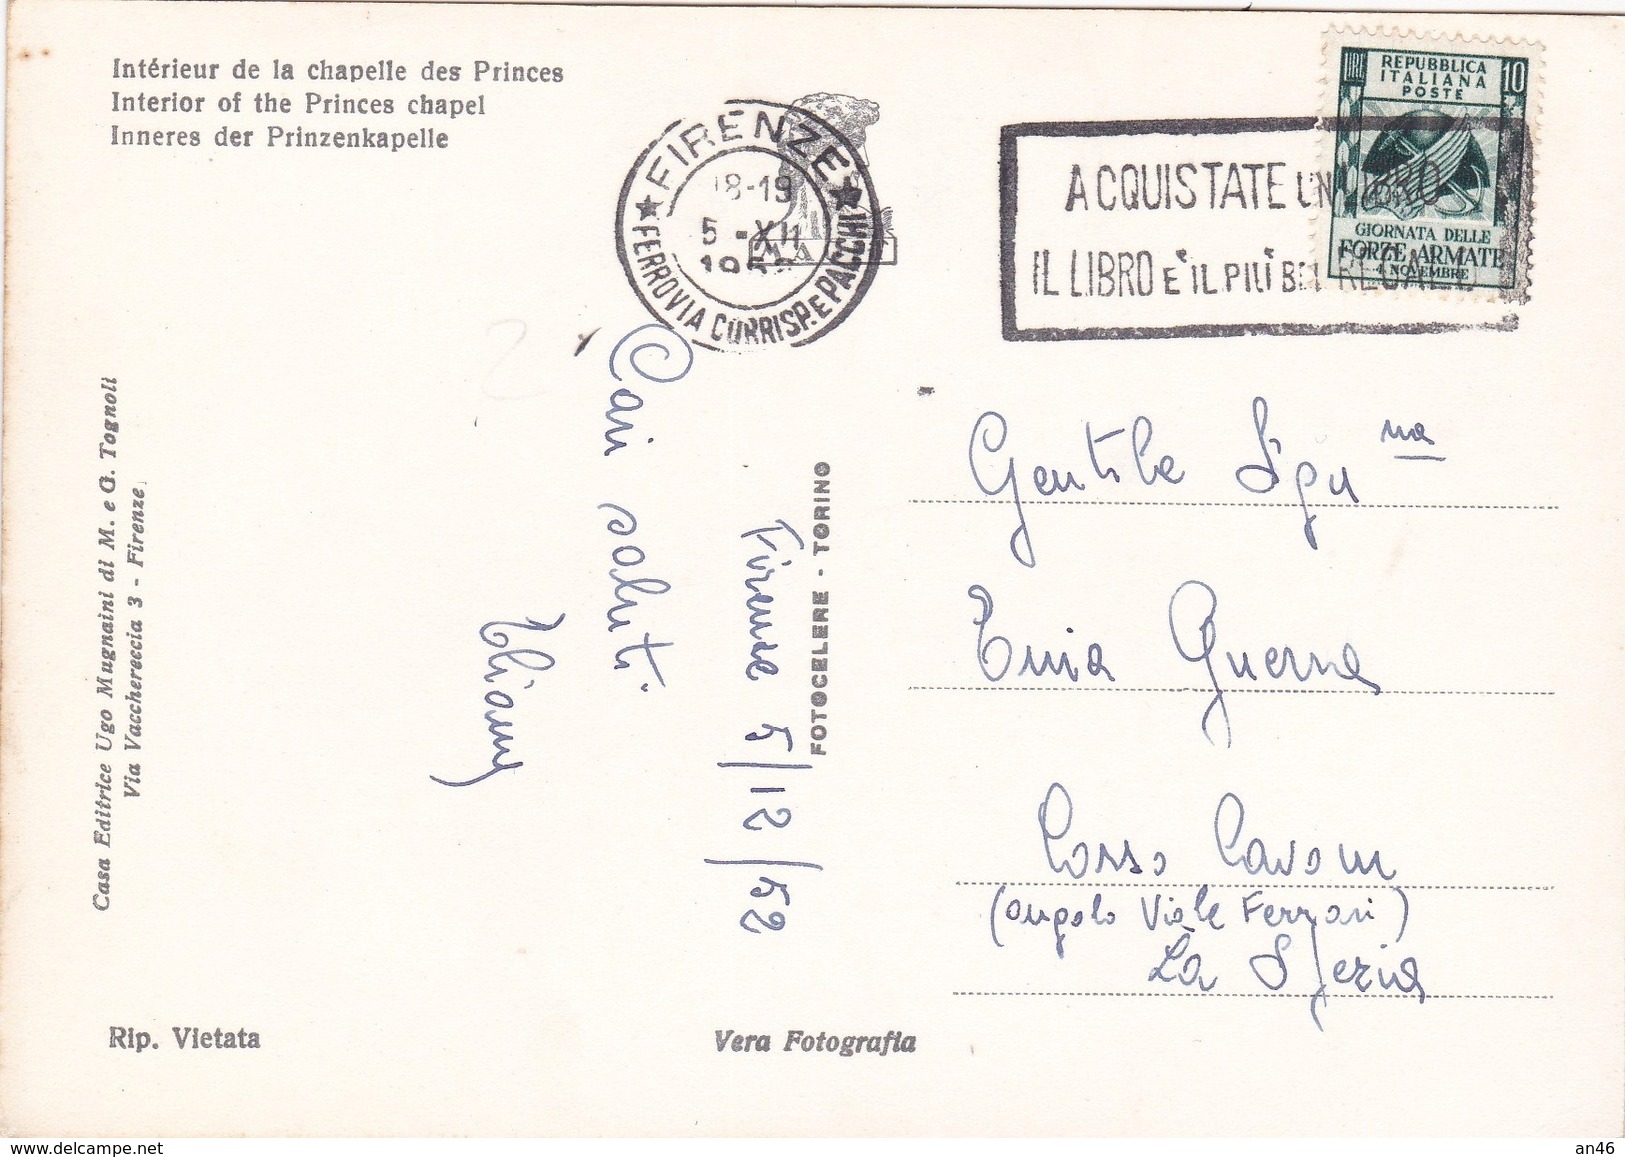 Intérieur de la chapelle des Princes
Interior of the Princes chapel
Inneres der Prinzenkapelle
FIRENZE
18-19
5 -XII
FERROVIA CORRISP. E PACCHI
ACQUISTATE UN LIBRO
IL LIBRO E' IL PIÙ BEL REGALO
LIRE 10
REPUBBLICA
ITALIANA
POSTE
GIORNATA DELLE
FORZE ARMATE
4 NOVEMBRE
Casa Editrice Ugo Mugnaini di M. e G. Tognoli
Via Vacchereccia 3 - Firenze
Cari saluti
Firenze 5/12/52
FOTOCELERE - TORINO
Gentile Sgn na
Guerra
Corso Cavour
(angolo Viale Ferrari)
La Spezia
Rip. Vietata
Vera Fotografia
www.delcampe.net
an46